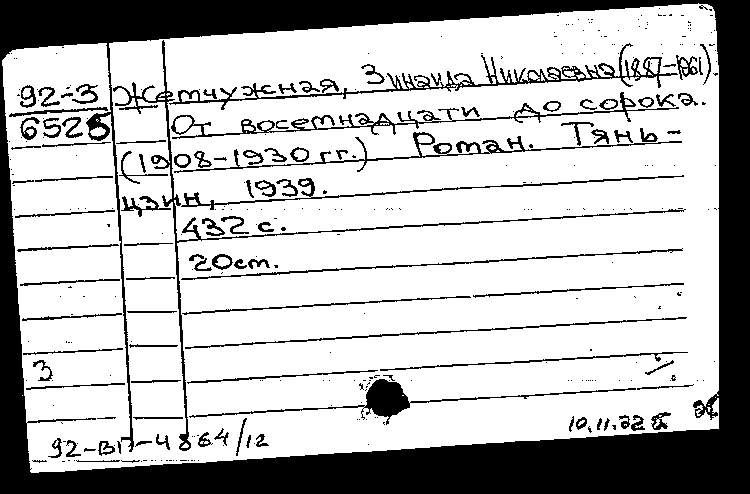 92-3 Жемчужная, Зинаида Николаевна (1887-1961).
6525 От восемнадцати до сорока.
(1908-1930 гг.) Роман. Тянь-
цзин, 1939.
432 с.
20 cm.
3
92-ВП-4864/12
10.11.22